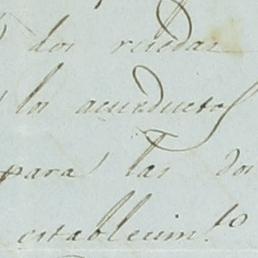 dos ruedas
los acueductos
para las dos
establecim.to